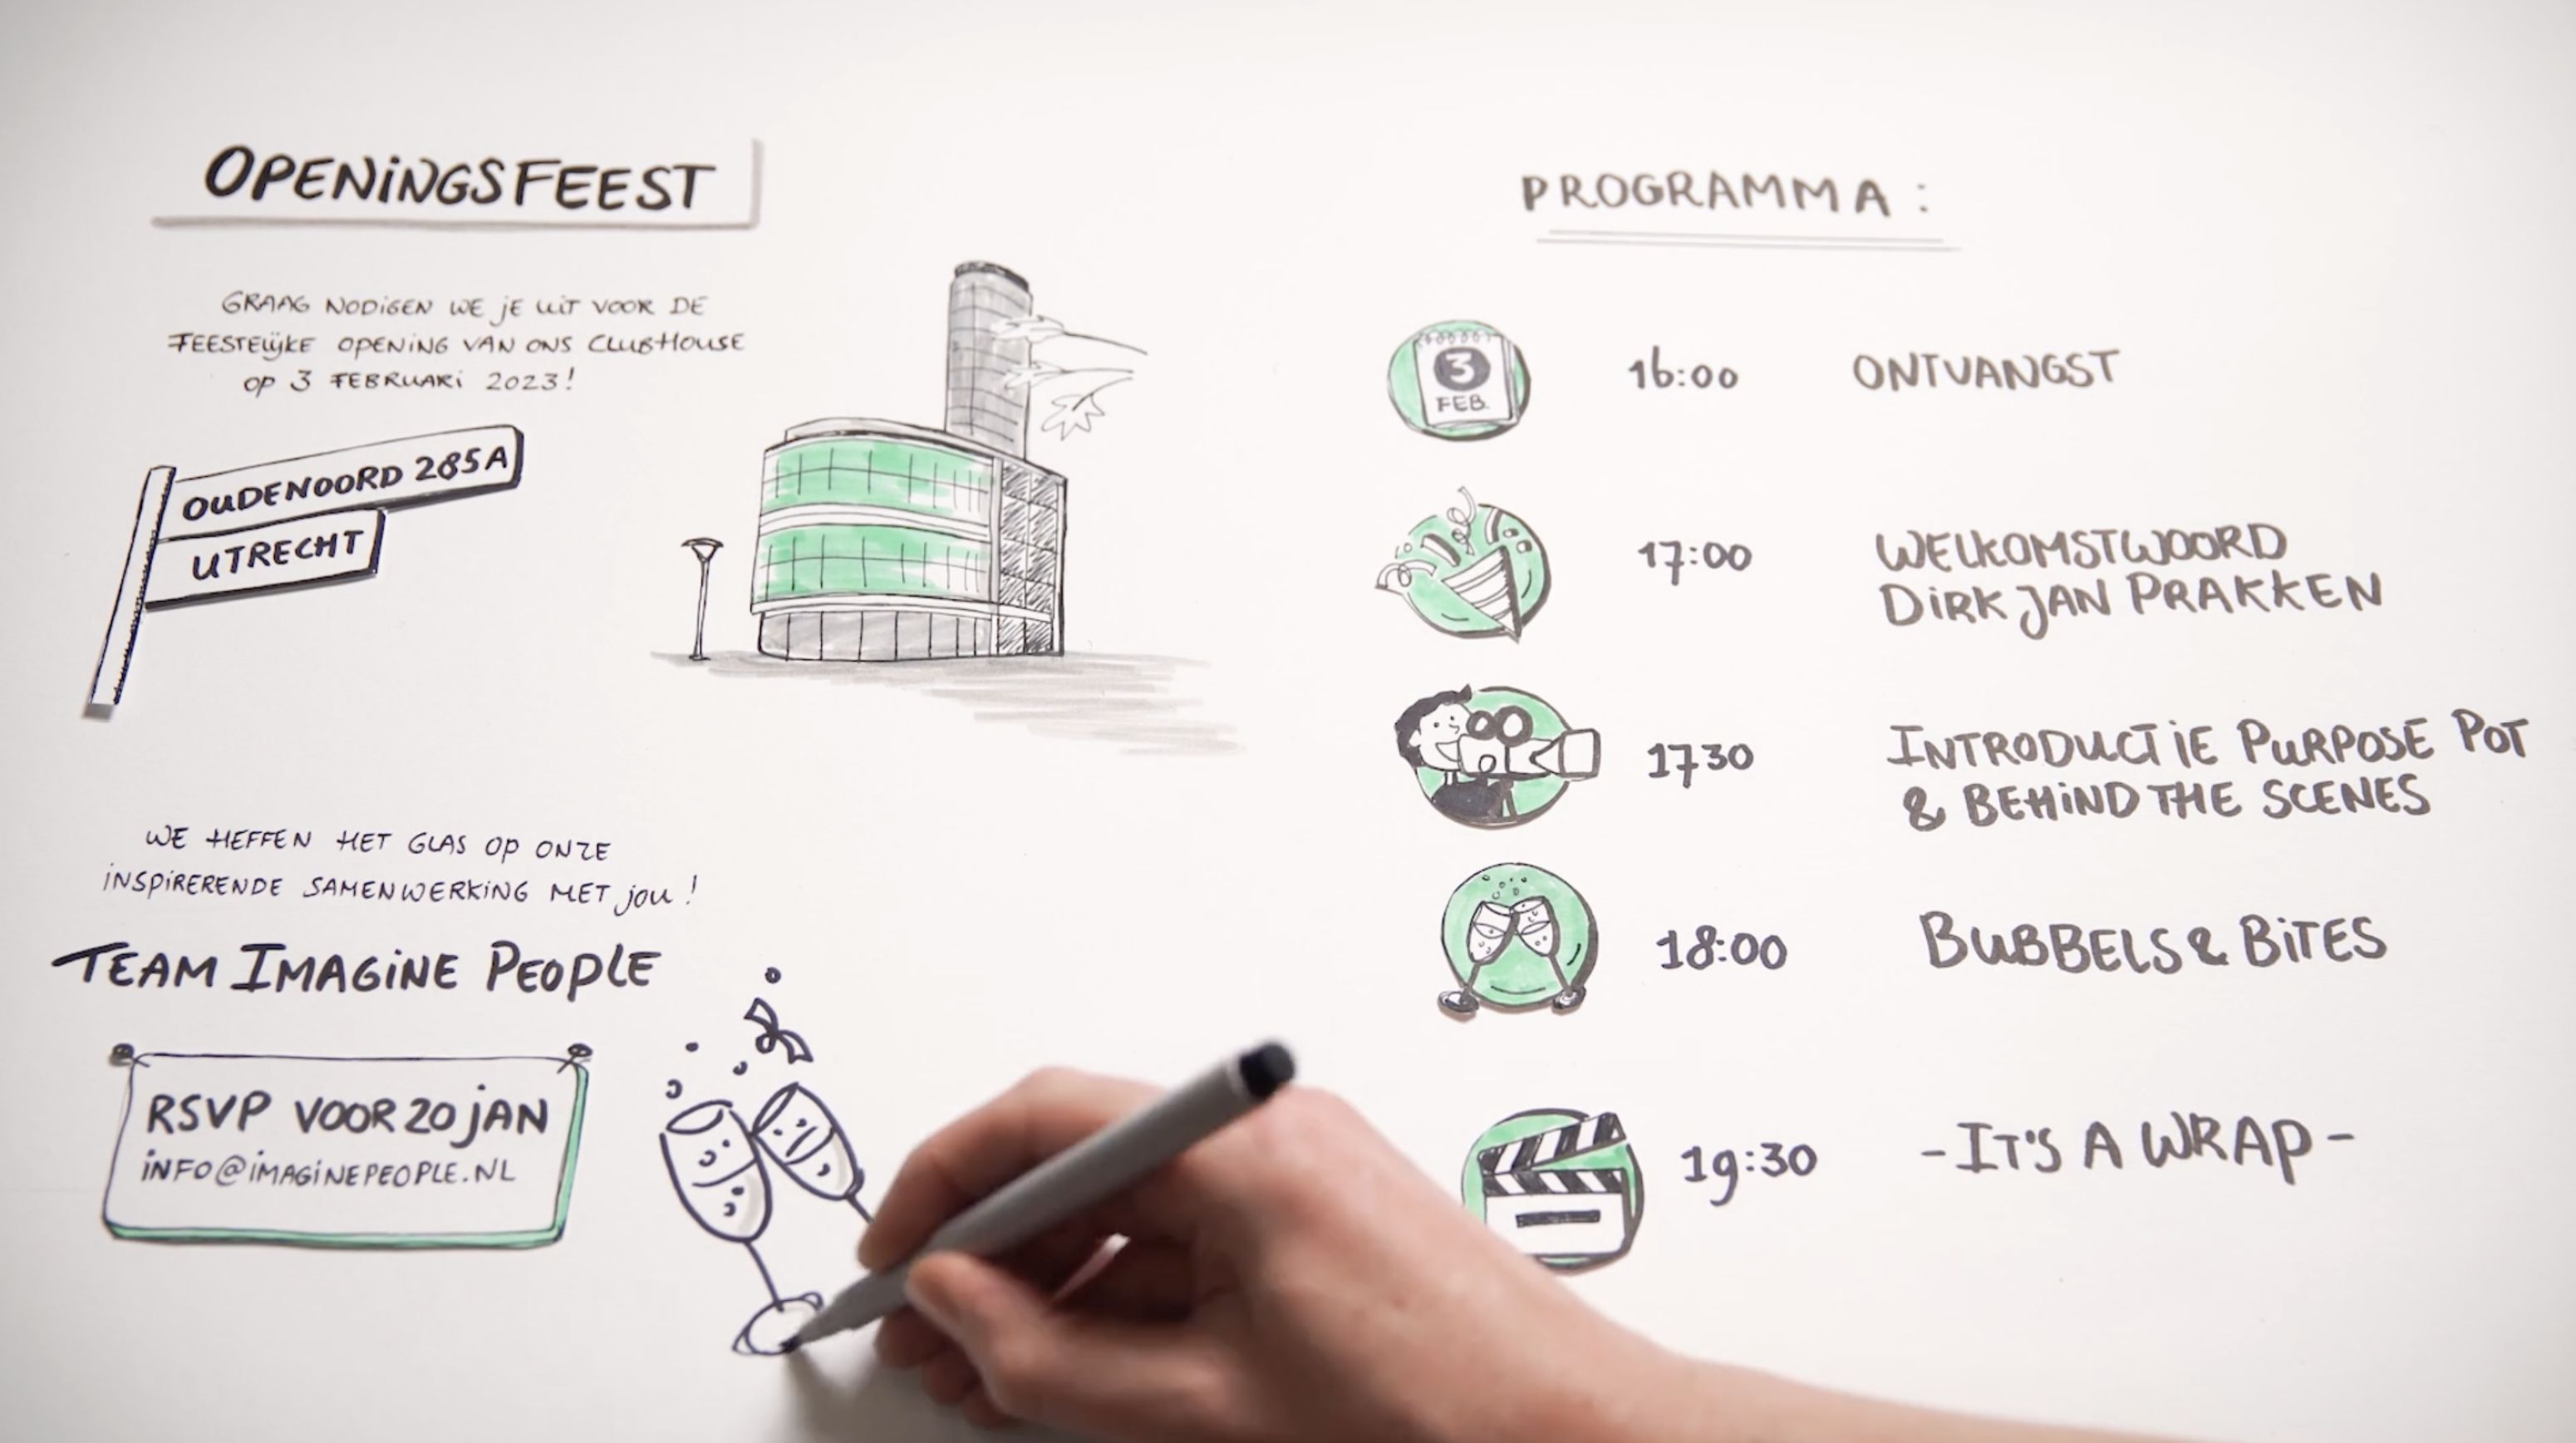 OPENINGSFEEST
GRAAG NODIGEN WE JE UIT VOOR DE
FEESTELIJKE OPENING VAN ONS CLUBHOUSE
OP 3 FEBRUARI 2023!
OUDENOORD 285A
UTRECHT
WE HEFFEN HET GLAS OP ONZE
INSPIRERENDE SAMENWERKING MET JOU!
TEAM IMAGINE PEOPLE
RSVP VOOR 20 JAN
INFO@IMAGINEPEOPLE.NL
PROGRAMMA:
3
FEB.
16:00 ONTVANGST
17:00 WELKOMSTWOORD
DIRK JAN PRAKKEN
1730 INTRODUCTIE PURPOSE POT
& BEHIND THE SCENES
18:00 BUBBELS & BITES
19:30 -IT'S A WRAP-